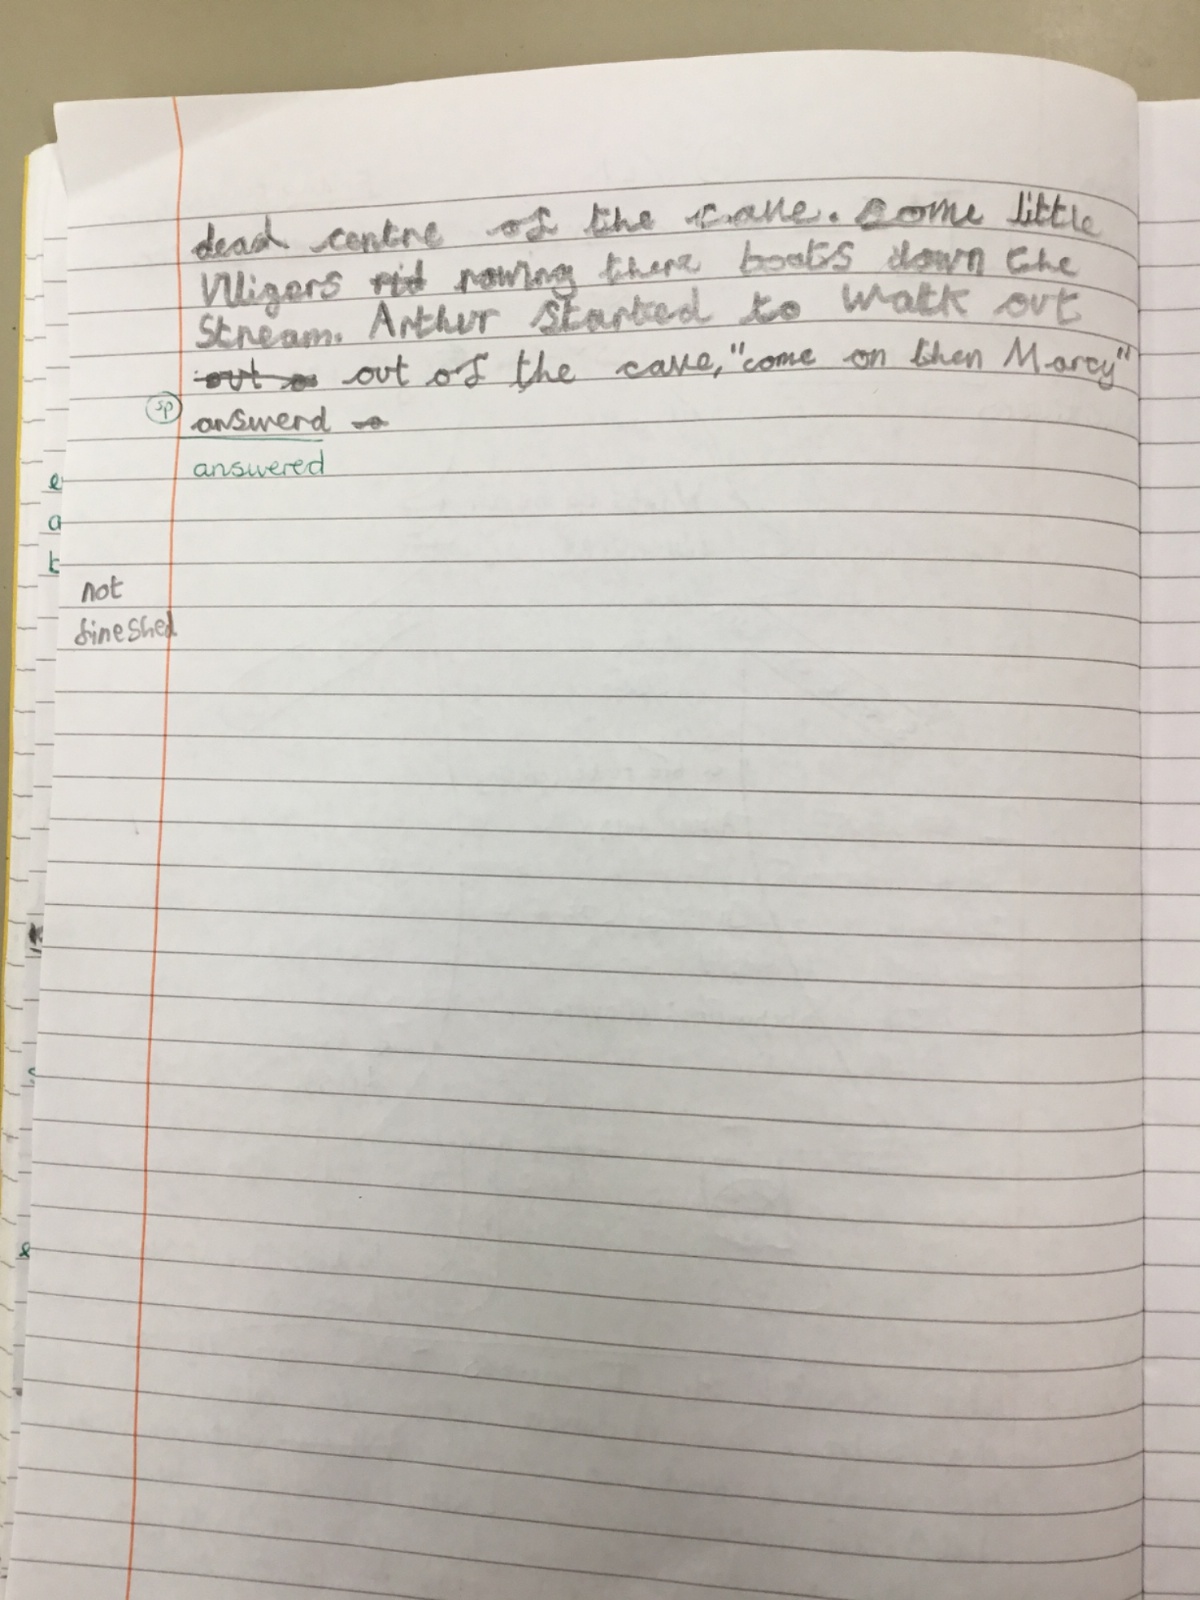 dead centre of the cave. Some little
Vligers rid rowing there boats down the
Stream. Arthur started to walk out
out o out of the cave, "come on then Marcy"
sp answerd
answered
e
a
t
not
fineshed